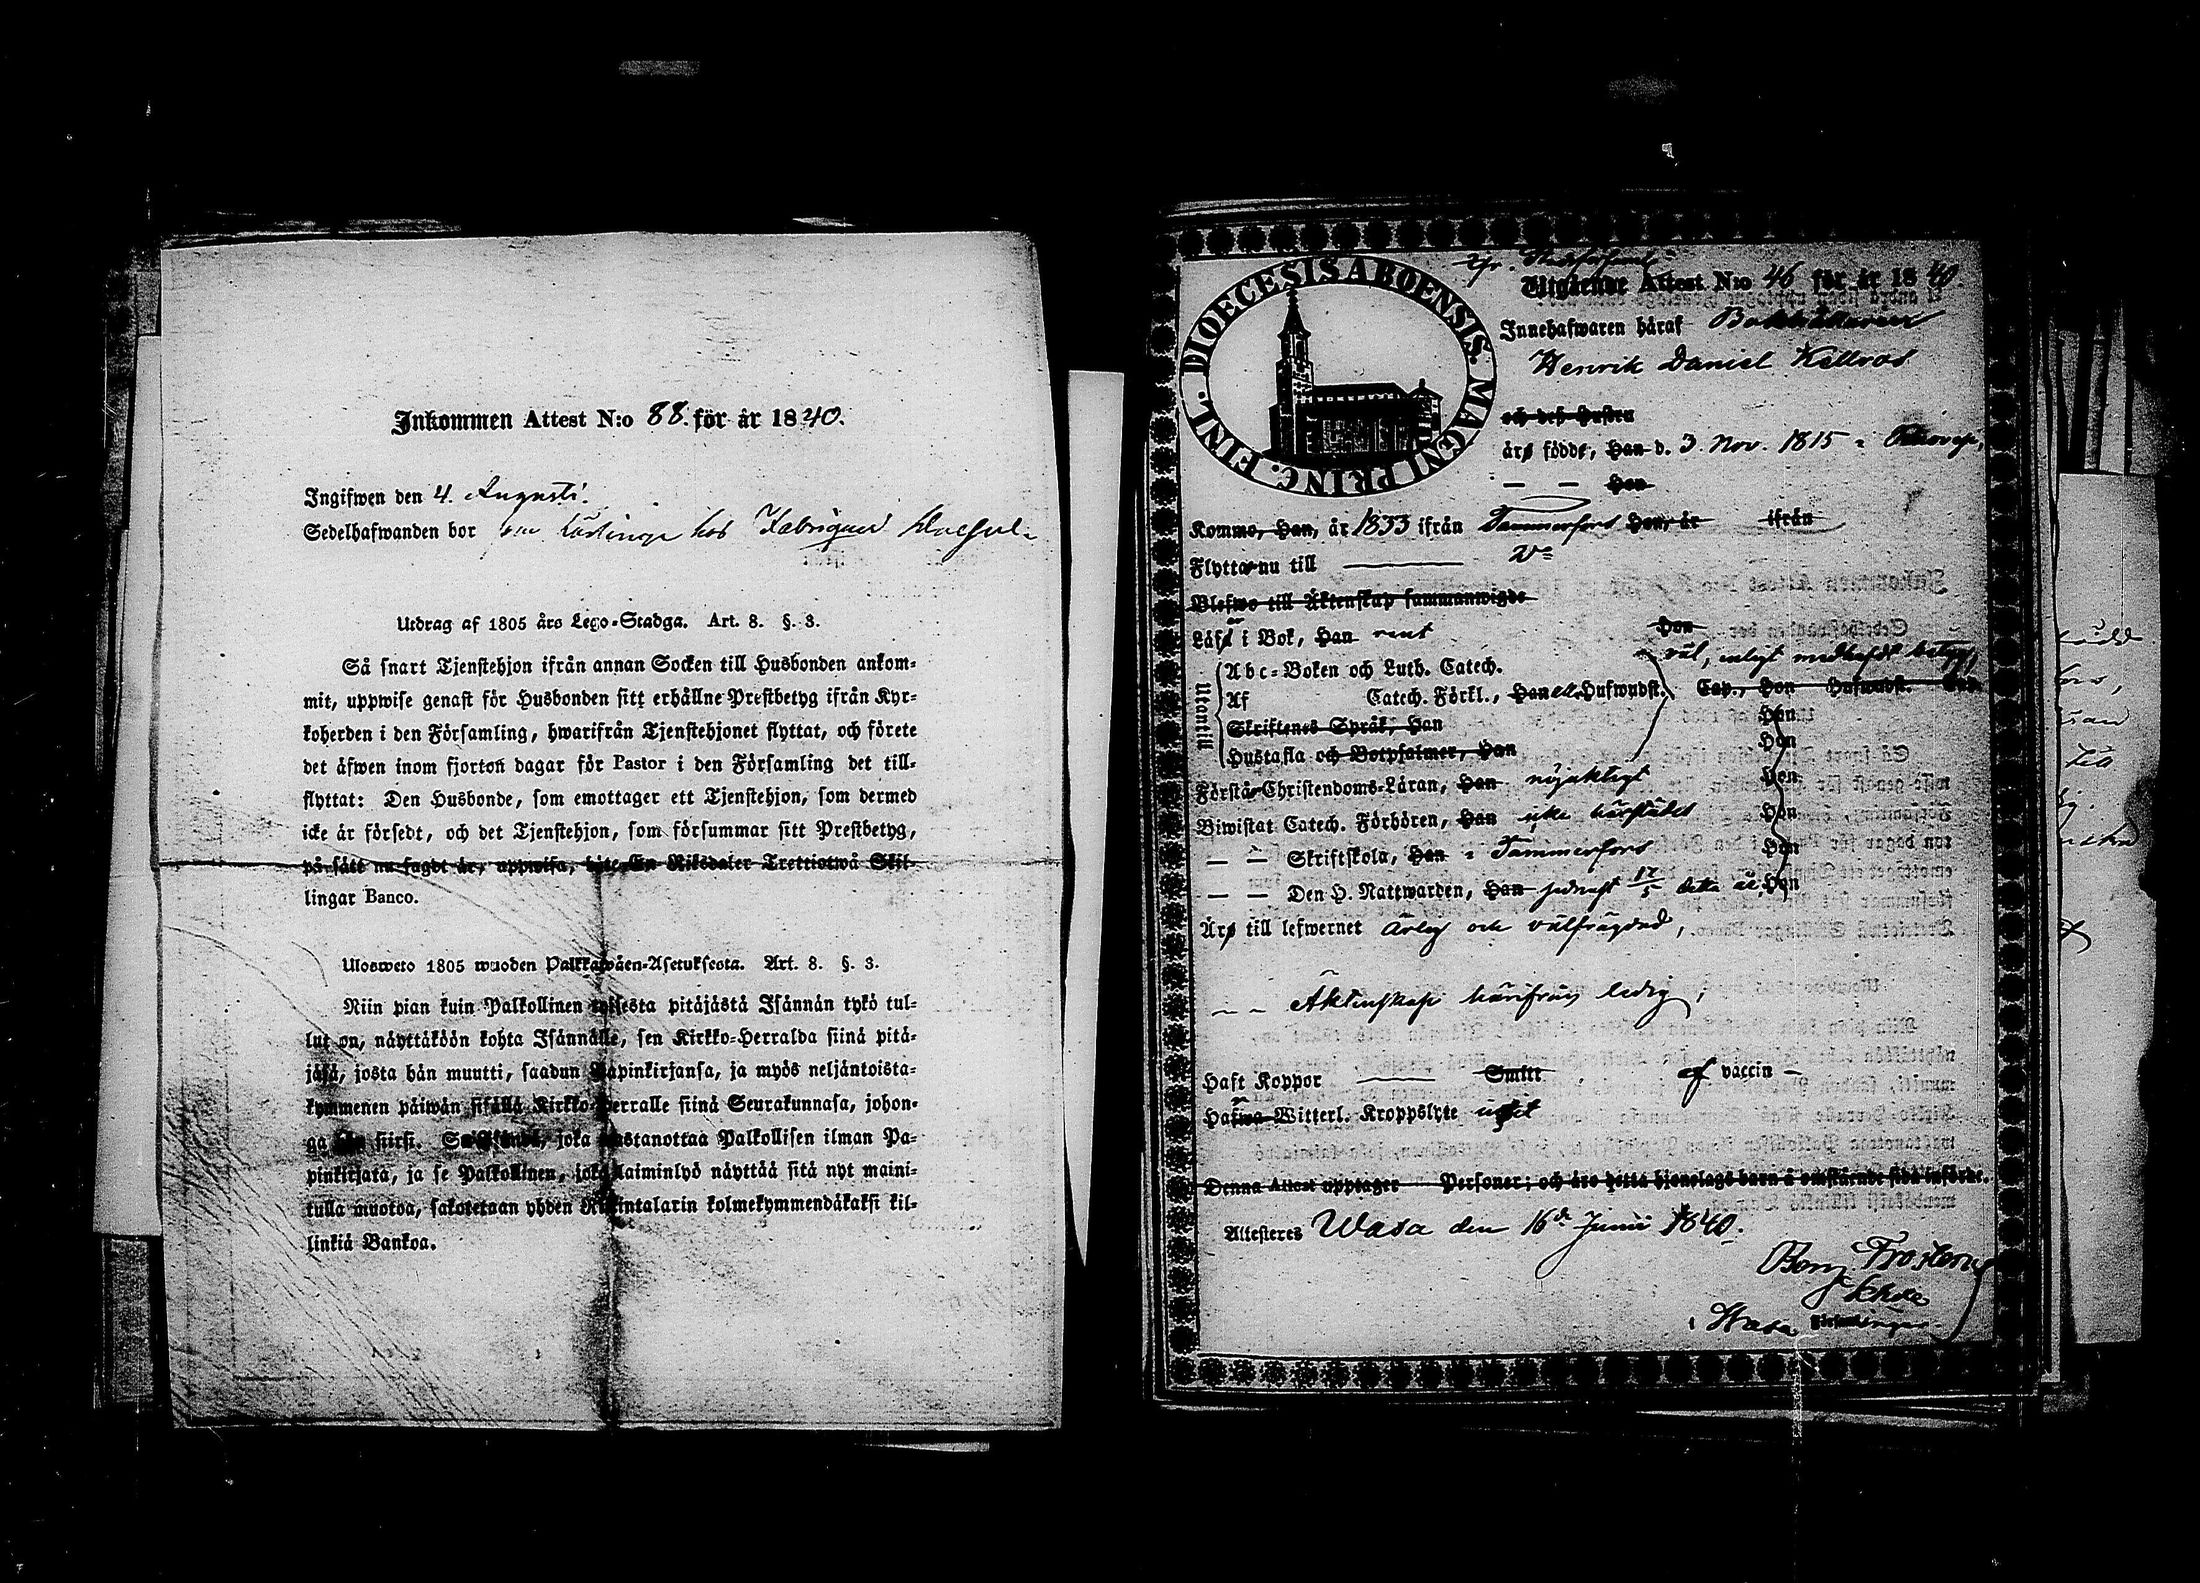 Inkommen Attest N:o 88. för år 1840.
Ingifwen den 4. Augusti.
Sedelhafwanden bor hos
Utdrag af 1805 års Lego-Stadga. Art. 8. §. 3.
Så snart Tjenstehjon ifrån annan Socken till Husbonden ankom-
mit, uppwise genast för Husbonden sitt erhållne Prestbetyg ifrån Kyr-
koherden i den Församling, hwarifrån Tjenstehjonet flyttat, och förete
det äfwen inom fjorton dagar för Pastor i den Församling det till-
flyttat: Den Husbonde, som emottager ett Tjenstehjon, som dermed
icke är försedt, och det Tjenstehjon, som försummar sitt Prestbetyg,
på sätt nu sagdt är, uppwisa, böte En Riksdaler Trettiotwå Skil-
lingar Banco.
Ulosweto 1805 wuoden Palkkawäen-Asetuksesta. Art. 8. §. 3.
Niin pian kuin Palkollinen toisesta pitäjästä Isännän tykö tul-
lut on, näyttäköön kohta Isännälle, sen Kirkko-Herralda siinä pitä-
jäsä, josta hän muutti, saadun Papinkirjansa, ja myös neljäntoista-
kymmenen päiwän sisällä Kirkko-Herralle siinä Seurakunnasa, johon-
ga hän siirsi. Se Isäntä, joka wastanottaa Palkollisen ilman Pa-
pinkirjata, ja se Palkollinen, joka laiminlyö näyttää sitä nyt maini-
tulla muotoa, sakotetaan yhden Riikintalarin kolmekymmendäkaksi kil-
linkiä Bankoa.
DIOECESIS ABOENSIS. MAGNI PRINC. FINL.
Utgående Attest N:o 46 för år 1840.
Innehafwaren häraf Bokhållaren
Henrik Daniel Kellros
och dess Hustru
äro födde, Han d. 3. Nov. 1815 i
— — Hon
Komme, Han, år 1833 ifrån Tammerfors Hon, år ifrån
Flytta nu till ———
Blefwo till Äktenskap sammanwigde
Läsa i Bok, Han rent Hon
Utantill
Abc-Boken och Luth. Catech. väl, enligt medhafdt betyg,
Af Catech. Förkl., Han Hufwudst. Cap., Hon Hufwudst. Cap.
Skriftenes Språk, Han Hon
Hustafla och Botpsalmer, Han Hon
Förstå Christendoms-Läran, Han nöjaktigt Hon
Biwistat Catech. Förhören, Han icke härstädes Hon
— — Skriftskola, Han i Tammerfors Hon
— — Den H. Nattwarden, Han senast 17/5 detta år, Hon
Äro till lefwernet ärlig och välfrägdad,
— — Äktenskap härifrån ledig;
Haft Koppor ——— Smitt af vaccin —
Hafwa Witterl. Kroppslyte intet
Denna Attest upptager Personer; och äro detta hjonelags barn å omstående sida införde.
Attesteres Wasa den 16de Junii 1840.
Benj. Frosterus
i Wasa